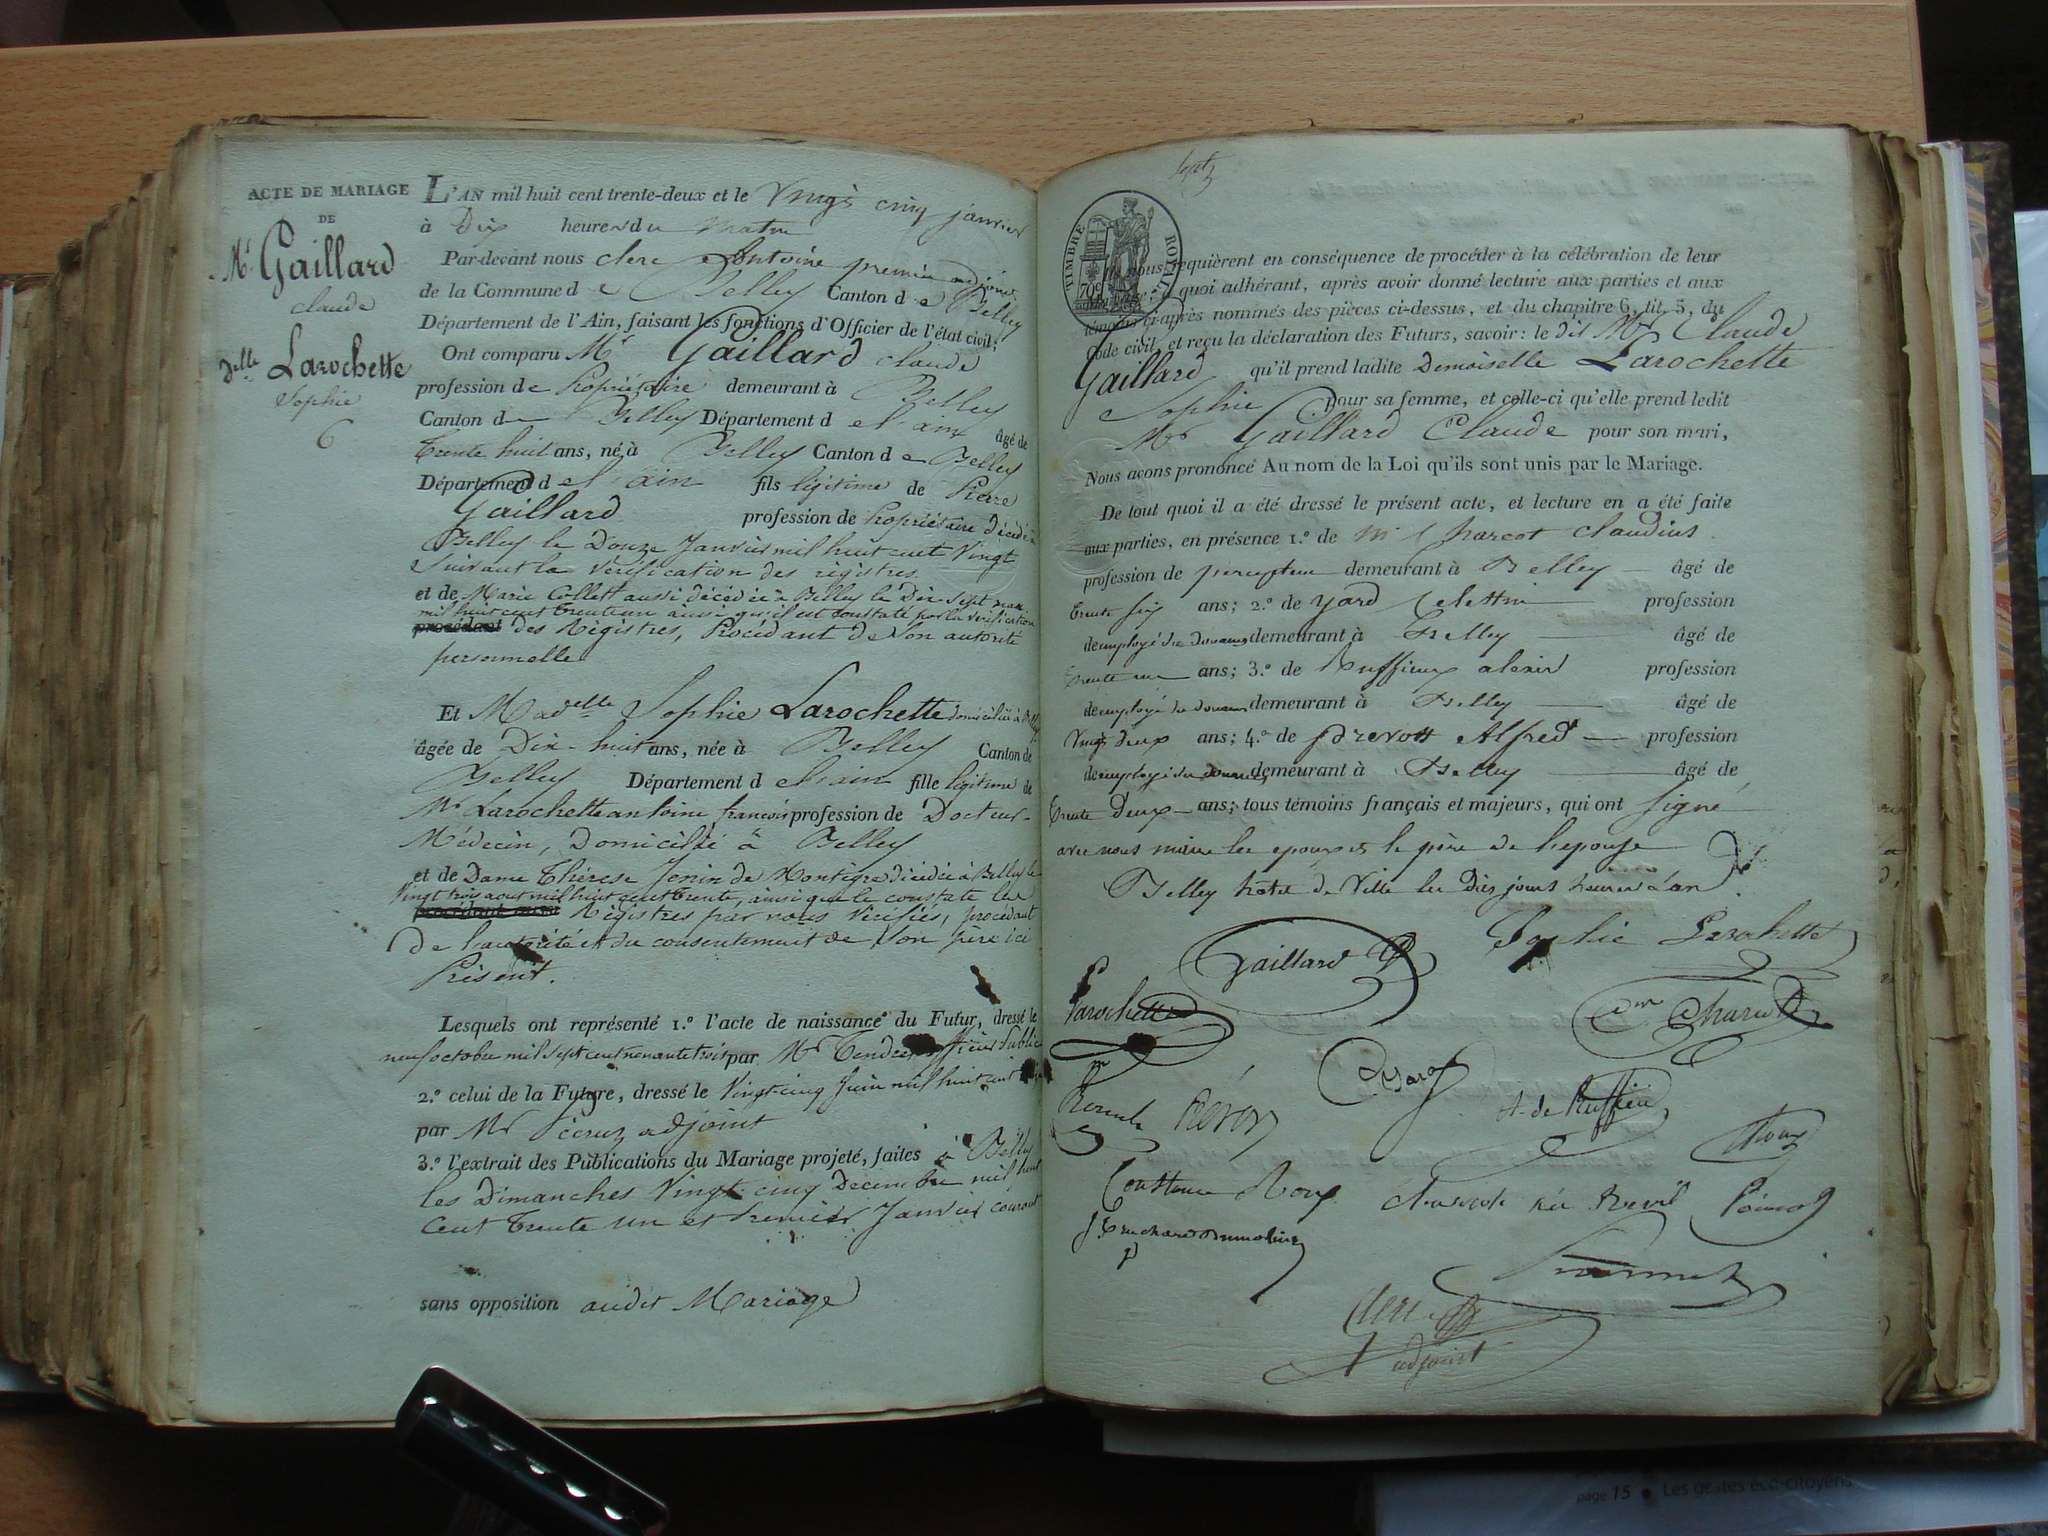 ACTE DE MARIAGE
DE
Mr Gaillard
claude
Delle Larochette
Sophie
6
L'AN mil huit cent trente-deux et le Vingt cinq janvier
à Dix heures du Matin
Par-devant nous clerc Antoine premier adjoint
de la Commune de Belley Canton de Belley
Département de l'Ain, faisant les fonctions d'Officier de l'état civil;
Ont comparu Mr Gaillard claude
profession de Propriétaire demeurant à Belley
Canton de Belley Département de l'ain âgé de
trente huit ans, né à Belley Canton de Belley
Département de l'ain fils légitime de Pierre
Gaillard profession de Propriétaire décédé à
Belley le Douze Janvier mil huit cent Vingt
Suivant la vérification des régistres
et de Marie Collett aussi décédée à Belley le Dix-Sept
mil huit cent trente un ainsi qu'il est constaté par la vérification
procédant des Régistres, Procédant de Son autorité
personnelle
Et Madelle Sophie Larochette domiciliée à Belley
âgée de Dix-huit ans, née à Belley Canton de
Belley Département de l'ain fille légitime de
Mr Larochette antoine françois profession de Docteur-
Médecin, Domicilié à Belley
et de Dame Thérèse Jenin de Montègre décédée à Belley le
Vingt trois aout mil huit cent trente, ainsi que le constate les
Régistres par nous Vérifiés, procédant
De l'autorité et du consentement de Son père ici
Présent.
Lesquels ont représenté 1.º l'acte de naissance du Futur, dressé le
neuf octobre mil sept cent nonante trois par Mr officier Public
2.º celui de la Future, dressé le Vingt-cinq Juin mil huit cent
par Mr adjoint
3.º l'extrait des Publications du Mariage projeté, faites à Belley
les Dimanches Vingt cinq Decembre mil huit
Cent trente un et Premier Janvier courant
sans opposition audit Mariage
Sept
TIMBRE ROYAL
70c
Ils nous requièrent en conséquence de procéder à la célébration de leur
mariage; à quoi adhérant, après avoir donné lecture aux parties et aux
témoins ci-après nommés des pièces ci-dessus, et du chapitre 6, tit. 5, du
Code civil, et reçu la déclaration des Futurs, savoir: le dit Mr Claude
Gaillard qu'il prend ladite Demoiselle Larochette
Sophie pour sa femme, et celle-ci qu'elle prend ledit
Mr Gaillard Claude pour son mari,
Nous avons prononcé Au nom de la Loi qu'ils sont unis par le Mariage.
De tout quoi il a été dressé le présent acte, et lecture en a été faite
aux parties, en présence 1.º de Mr Charcot claudius
profession de percepteur demeurant à Belley âgé de
trente six ans; 2.º de yard Celestin profession
d'employé des douanes demeurant à Belley âgé de
trente un ans; 3.º de Ruffieux alexis profession
d'employé des douanes demeurant à Belley âgé de
Vingt deux ans; 4.º de prevost Alfred profession
d'employé des douanes demeurant à Belley âgé de
trente Deux ans; tous témoins français et majeurs, qui ont Signé
avec nous même les epoux et le père de l'epouse
Belley hôtel de Ville les Dits jours heures & an
Gaillard
Sophie Larochette
Larochette
Yard
A. de Ruffieu
Constance Roux
née Revil
Clerc
adjoint
page 15 • Les gestes éco-citoyens